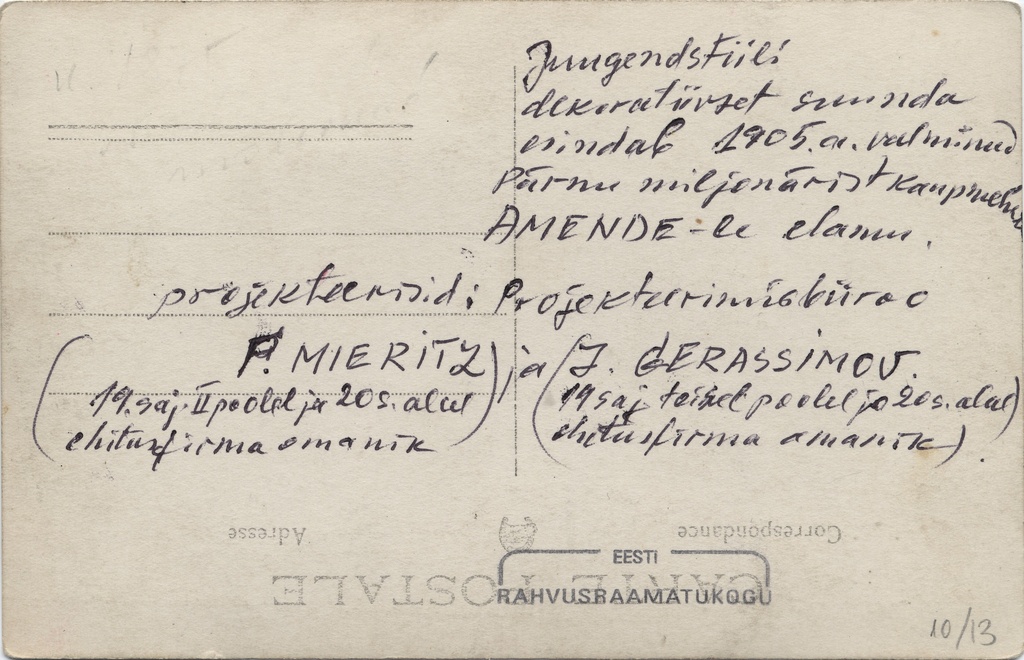 Juugendstiili
dekoratiivset suunda
esindab 1905.a. valminud
Pärnu miljonärist kaupmehe
AMENDE-le elamu.
projekteerisid: Projekteerimisbüroo
F. MIERITZ ja J. GERASSIMOV.
(19. saj. II poolel ja 20 s. alul) (19 saj teisel poolel ja 20 s. alul
ehitusfirma omanik ehitusfirma omanik).
Adresse Correspondance
CARTE POSTALE
EESTI
RAHVUSRAAMATUKOGU
10/13